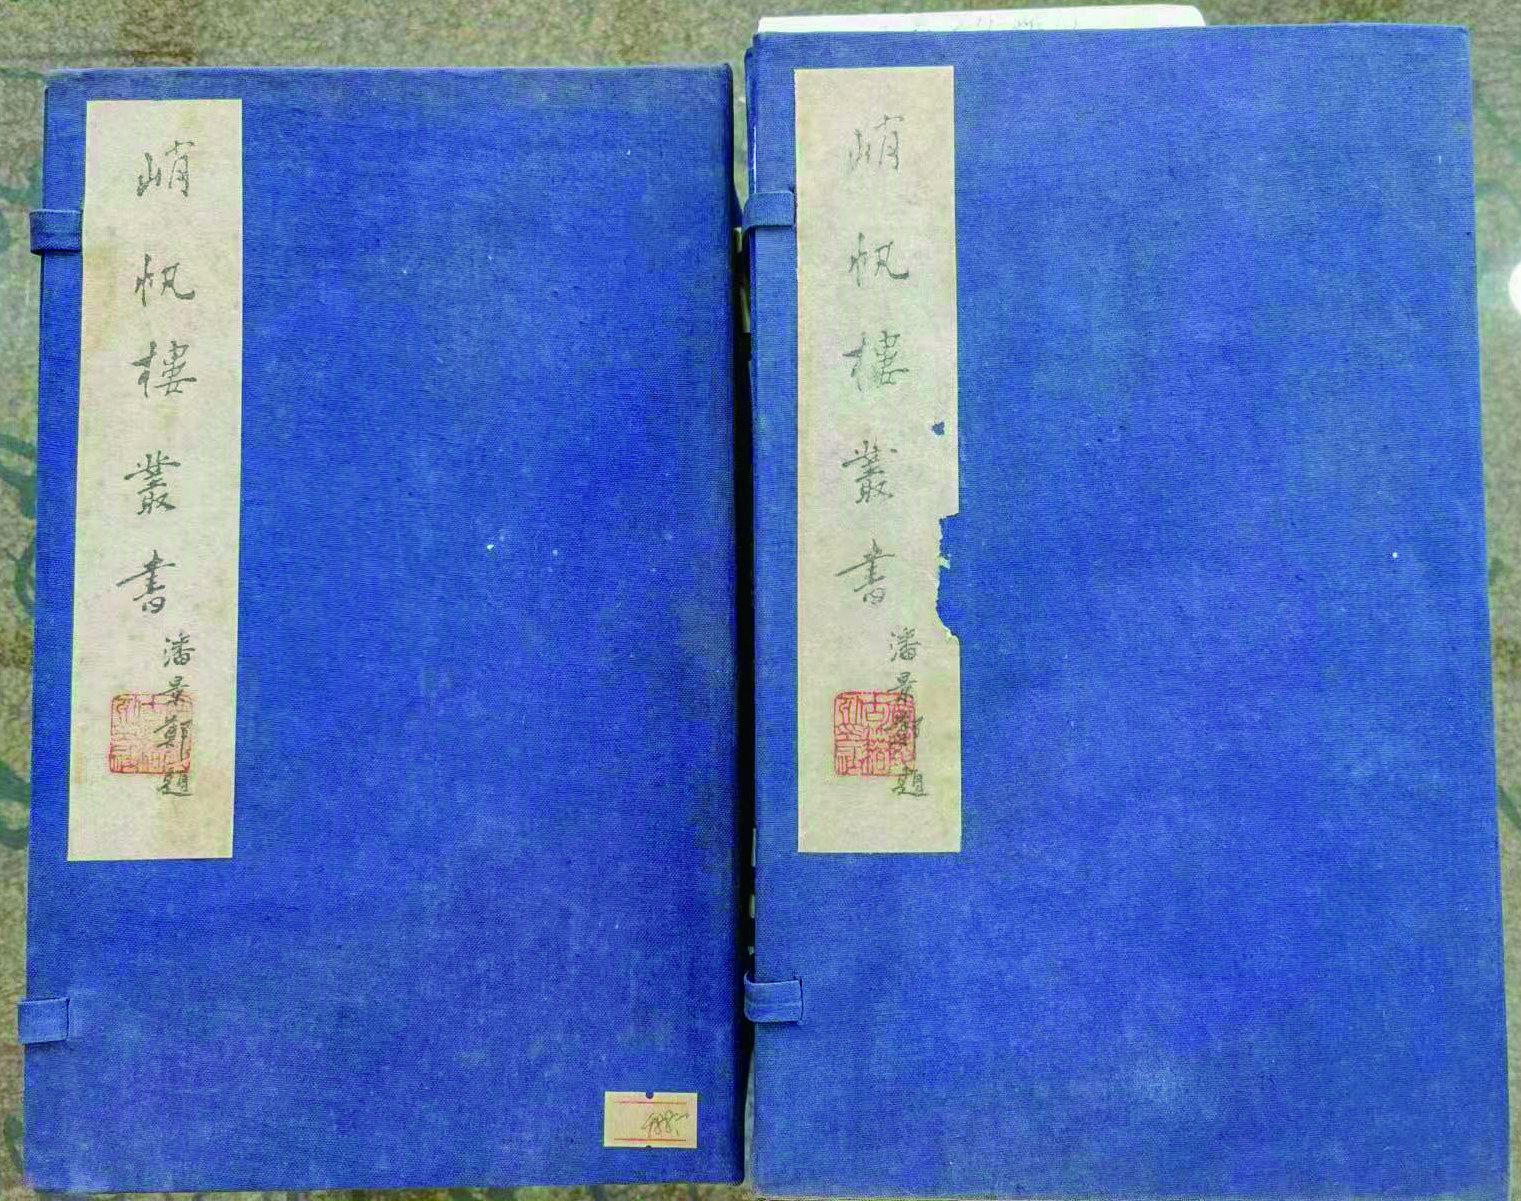 峭帆樓叢書
潘景鄭題
峭帆樓叢書
潘景鄭題